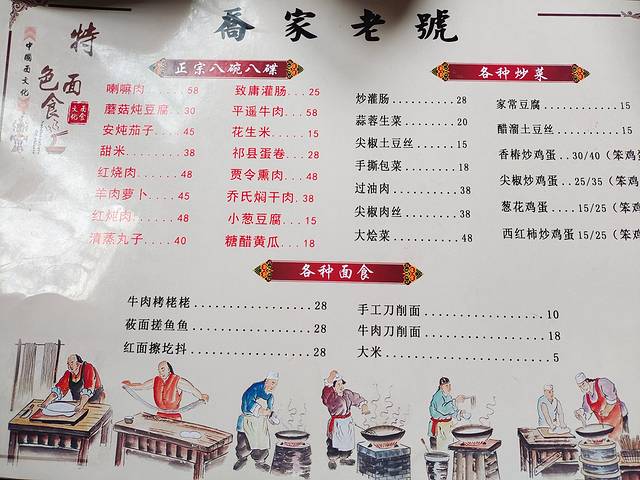 喬家老號
特
色面食
中國面文化
正宗八碗八碟
喇嘛肉......58
蘑菇炖豆腐..30
安炖茄子....45
甜米........38
红烧肉......48
羊肉萝卜....45
红炖肉......48
清蒸丸子....40
致庸灌肠...25
平遥牛肉...58
花生米.....15
祁县蛋卷...28
贾令熏肉...48
乔氏焖干肉.38
小葱豆腐...15
糖醋黄瓜...18
各种炒菜
炒灌肠..........28
蒜蓉生菜........20
尖椒土豆丝......15
手撕包菜........18
过油肉..........38
尖椒肉丝........38
大烩菜..........48
家常豆腐...........15
醋溜土豆丝.........15
香椿炒鸡蛋..30/40（笨鸡
尖椒炒鸡蛋..25/35（笨鸡
葱花鸡蛋....15/25（笨鸡
西红柿炒鸡蛋 15/25（笨鸡
各种面食
牛肉栲栳栳..................28
莜面搓鱼鱼..................28
红面擦圪抖..................28
手工刀削面..................10
牛肉刀削面..................18
大米........................5